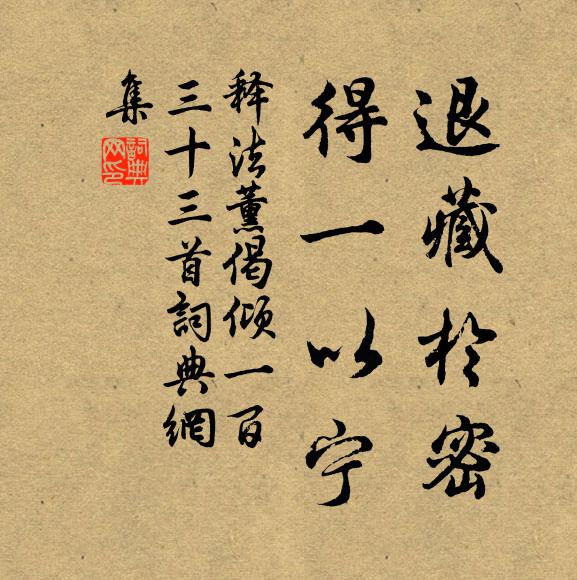 退藏於密
得一以宁
释法薰偈倾一百
三十三首詞典網
集
詞典
网印